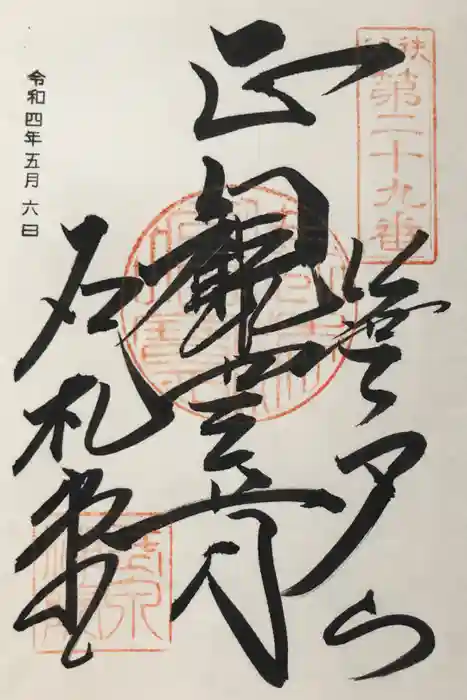 秩父
第二十九番
笹戸山
正観世音
石札堂
令和四年五月六日